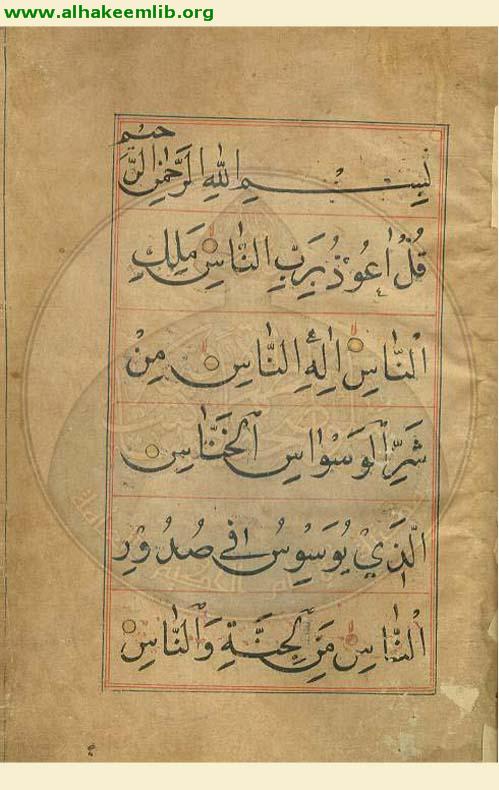 www.alhakeemlib.org
بِسْمِ اللهِ الرَّحْمٰنِ الرَّحِيْمِ
قُلْ اَعُوْذُ بِرَبِّ النَّاسِ مَلِكِ
النَّاسِ اِلٰهِ النَّاسِ مِنْ
شَرِّ الْوَسْوَاسِ الْخَنَّاسِ
الَّذِيْ يُوَسْوِسُ فِيْ صُدُوْرِ
النَّاسِ مِنَ الْجِنَّةِ وَالنَّاسِ